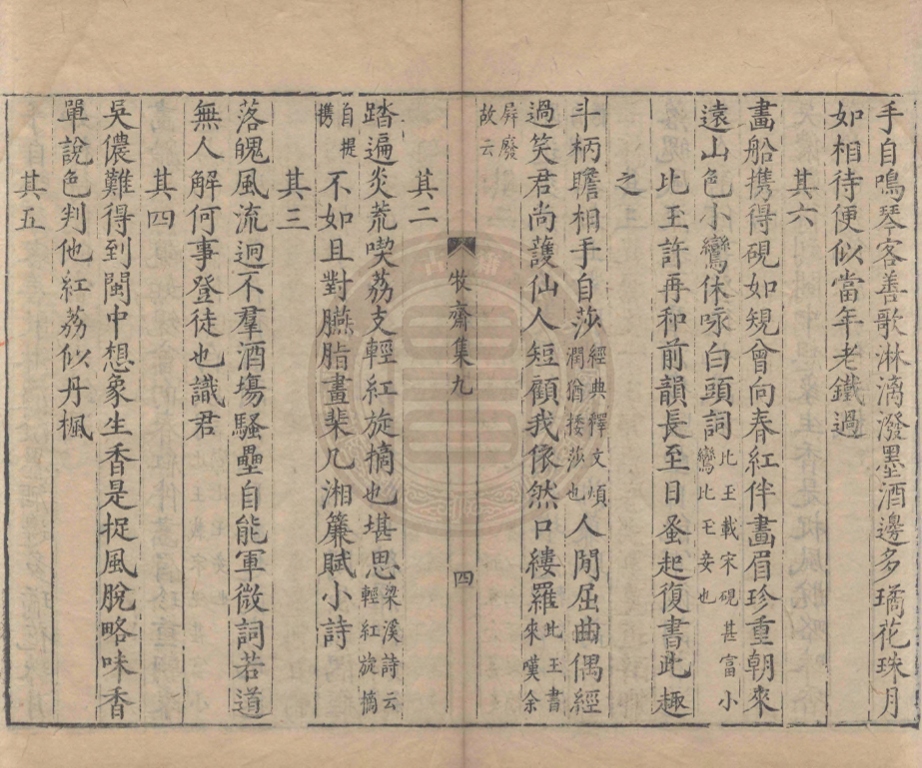 手自鳴琴客善歌淋漓潑墨酒邊多璚花珠月
如相待便似當年老鐵過
其六
畫船携得硯如䂓曾向春紅伴畫眉珍重朝來
遠山色小鸞休咏白頭詞比玉載宋硯甚富小鸞比玉妾也
比玉許再和前韻長至日蚤起復書此趣
之
斗柄瞻相手自莎經典釋文煩潤猶捼莎也人閒屈曲偶經
過笑君尚護仙人短顧我依然口縷羅比玉書來嘆余
屏廢故云
其二
踏遍炎荒喫荔支輕紅旋摘也堪思梁溪詩云輕紅旋摘
自提携不如且對臙脂畫棐几湘簾賦小詩
其三
落魄風流迥不羣酒塲騷壘自能軍微詞若道
無人解何事登徒也識君
其四
吳儂難得到閩中想象生香是捉風脫略味香
單說色判他紅荔似丹楓
其五
牧齋集九
四